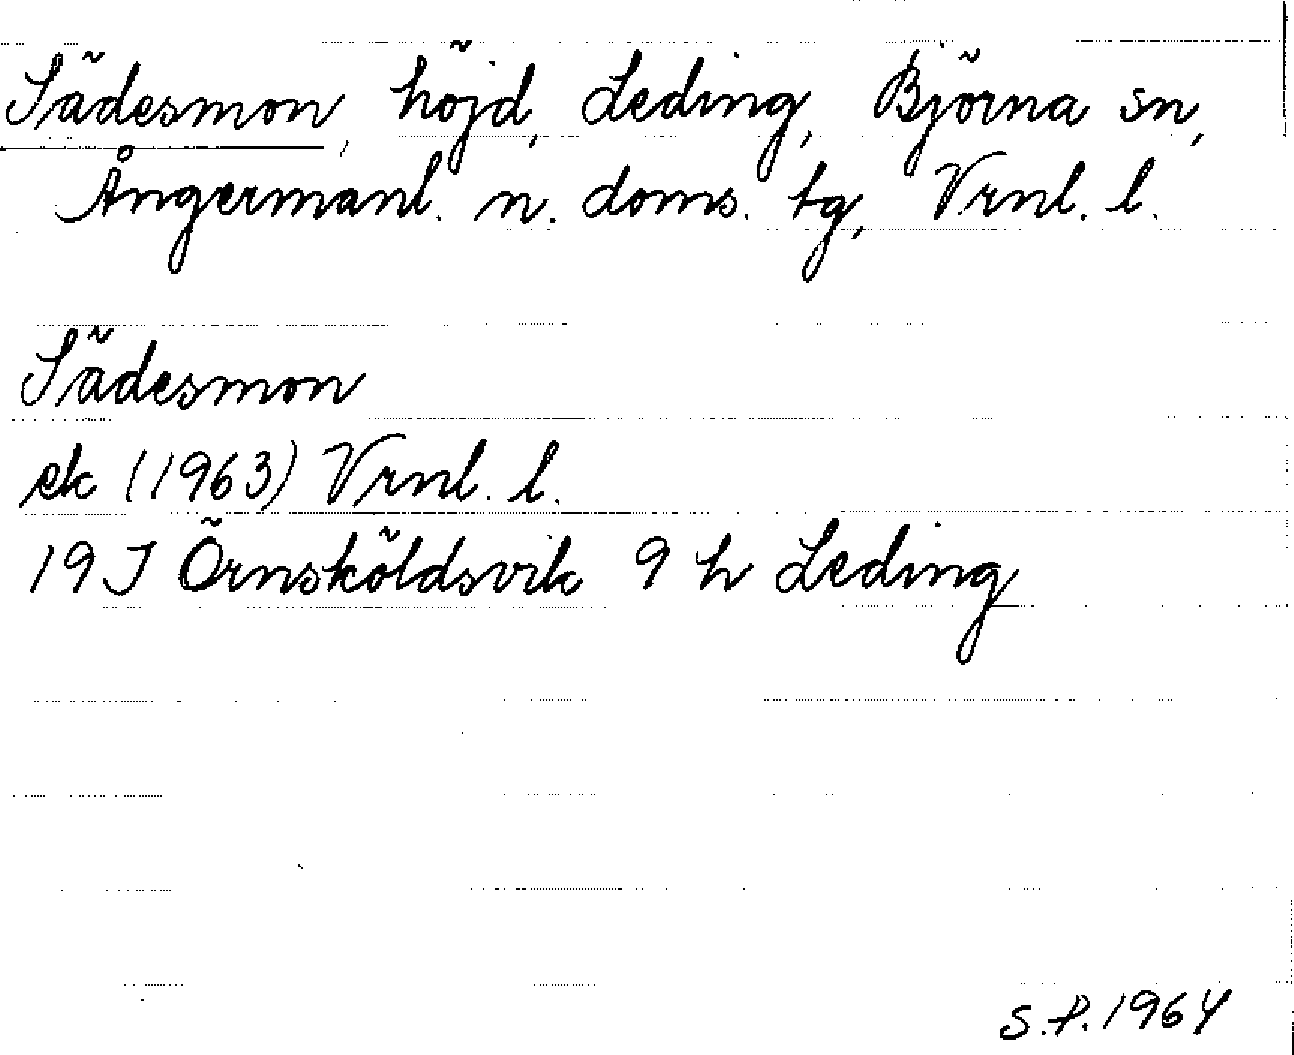 Sädesmon, höjd, Leding, Björna sn,
Ångermanl. n. doms. tg, Vrnl. l.
Sädesmon
ek (1963) Vrnl. l.
19 J Örnsköldsvik 9 h Leding
S.P. 1964